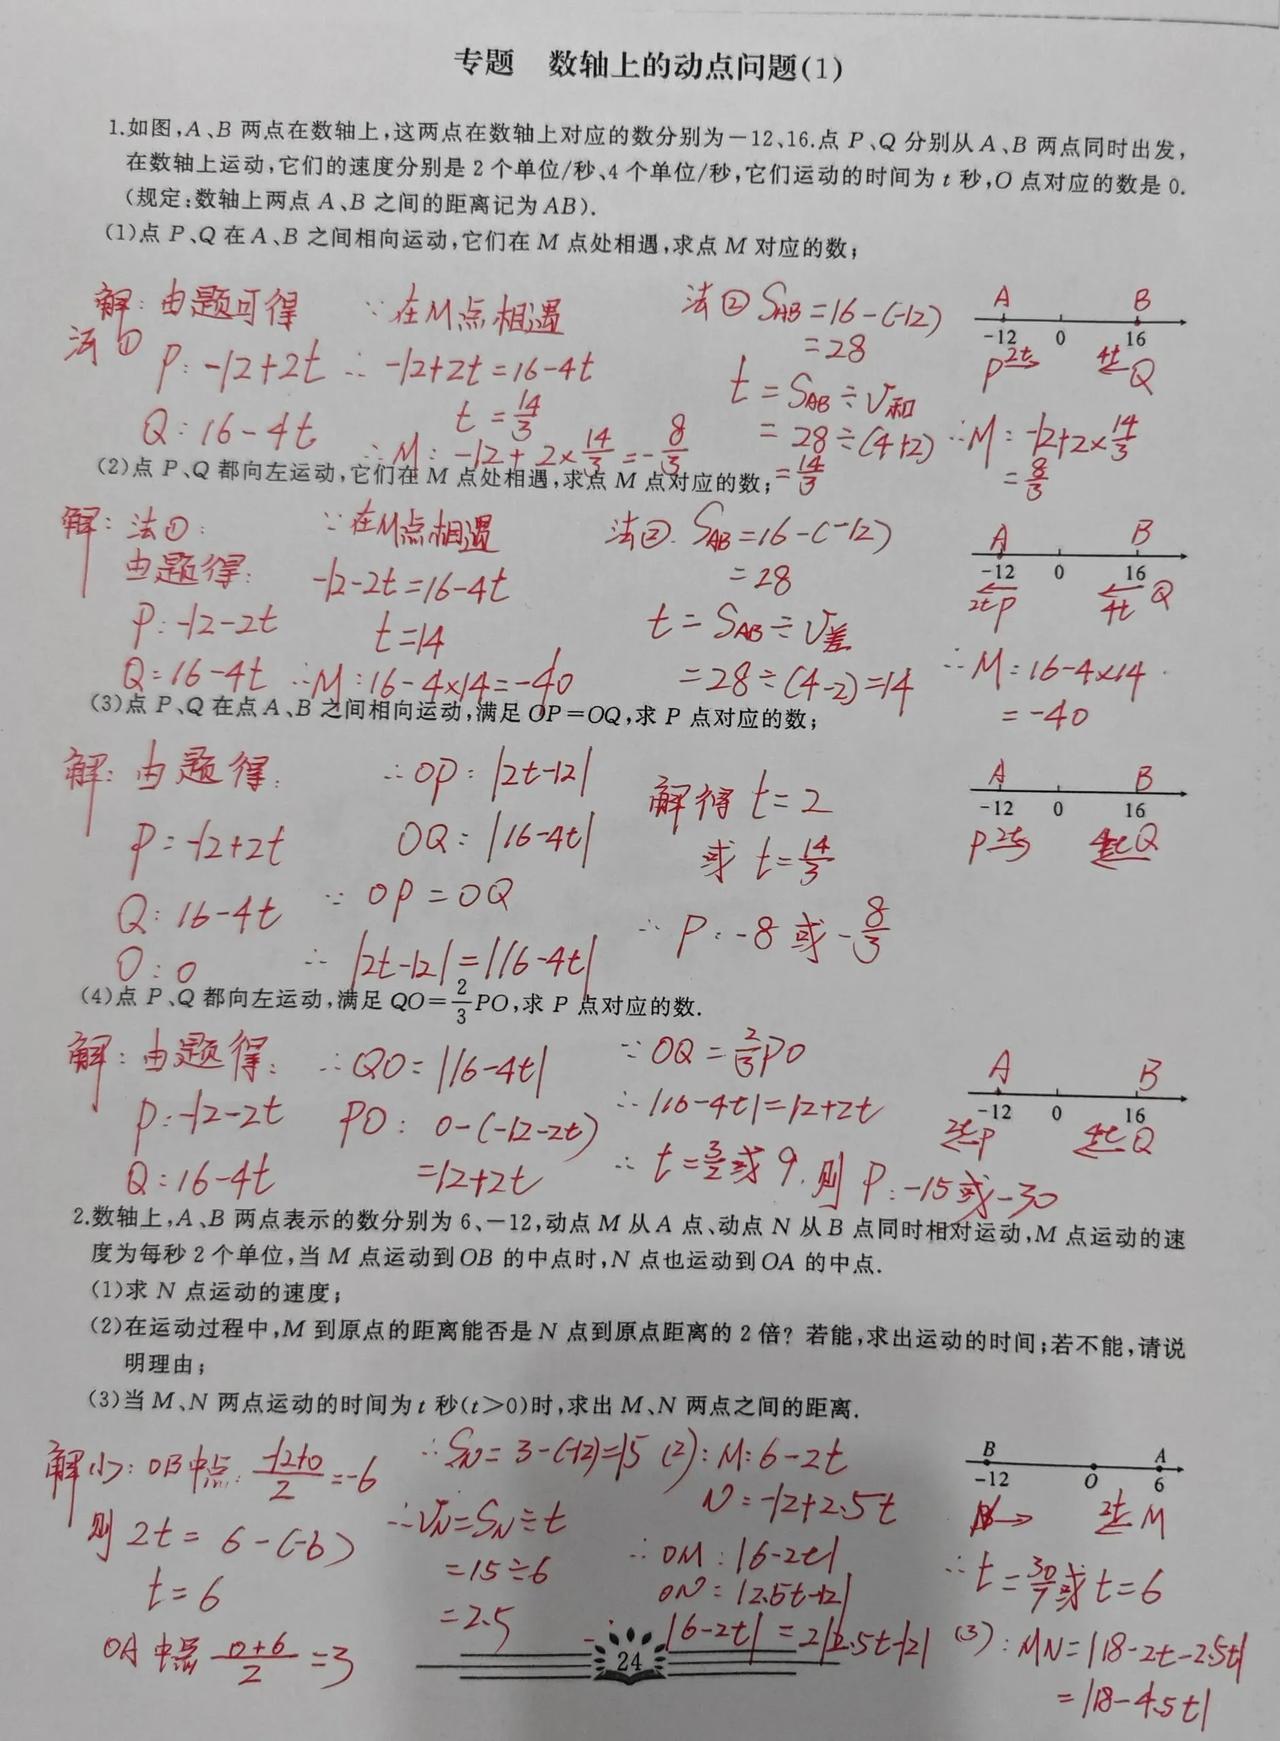 专题 数轴上的动点问题(1)
1.如图,A、B 两点在数轴上,这两点在数轴上对应的数分别为－12、16.点 P、Q 分别从 A、B 两点同时出发,
在数轴上运动,它们的速度分别是 2 个单位/秒、4 个单位/秒,它们运动的时间为 t 秒,O 点对应的数是 0.
(规定:数轴上两点 A、B 之间的距离记为 AB).
(1)点 P、Q 在 A、B 之间相向运动,它们在 M 点处相遇,求点 M 对应的数;
解:由题可得
法①
P:-12+2t
Q:16-4t
∵在M点相遇
∴-12+2t=16-4t
t=14/3
∴M:-12+2×14/3=-8/3
法② S_AB=16-(-12)
=28
t=S_AB÷V和
=28÷(4+2)
=14/3
∴M:-12+2×14/3
=8/3
A B
-12 0 16
P 2t 4t Q
(2)点 P、Q 都向左运动,它们在 M 点处相遇,求点 M 点对应的数;
解:法①:
由题得:
P:-12-2t
Q=16-4t
∵在M点相遇
-12-2t=16-4t
t=14
∴M:16-4×14=-40
法②. S_AB=16-(-12)
=28
t=S_AB÷V差
=28÷(4-2)=14
∴M:16-4×14
=-40
A B
-12 0 16
2t P 4t Q
(3)点 P、Q 在点 A、B 之间相向运动,满足 OP=OQ,求 P 点对应的数;
解:由题得:
P=-12+2t
Q:16-4t
O:0
∴OP:|2t-12|
OQ:|16-4t|
∵OP=OQ
∴|2t-12|=|16-4t|
解得t=2
或t=14/3
∴P:-8或-8/3
A B
-12 0 16
P 2t 4t Q
(4)点 P、Q 都向左运动,满足 QO=2/3PO,求 P 点对应的数.
解:由题得:
P:-12-2t
Q:16-4t
∴QO=|16-4t|
PO:0-(-12-2t)
=12+2t
∵OQ=2/3PO
∴|16-4t|=12+2t
∴t=3/2或9.则P:-15或-30
A B
-12 0 16
2t P 4t Q
2.数轴上,A、B 两点表示的数分别为 6、－12,动点 M 从 A 点、动点 N 从 B 点同时相对运动,M 点运动的速
度为每秒 2 个单位,当 M 点运动到 OB 的中点时,N 点也运动到 OA 的中点.
(1)求 N 点运动的速度;
(2)在运动过程中,M 到原点的距离能否是 N 点到原点距离的 2 倍? 若能,求出运动的时间;若不能,请说
明理由;
(3)当 M、N 两点运动的时间为 t 秒(t>0)时,求出 M、N 两点之间的距离.
解(1):OB中点:(-12+0)/2=-6
则2t=6-(-6)
t=6
OA中点(0+6)/2=3
∴S_N=3-(-12)=15
∴V_N=S_N÷t
=15÷6
=2.5
(2):M:6-2t
N=-12+2.5t
∴OM:|6-2t|
ON=|2.5t-12|
|6-2t|=2|2.5t-12|
B A
-12 O 6
2t M
∴t=30/7或t=6
(3):MN=|18-2t-2.5t|
=|18-4.5t|
24